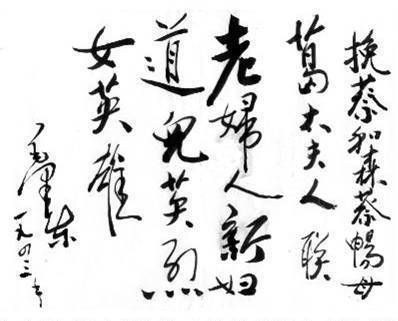 挽蔡和森蔡暢母
葛太夫人 联
老婦人新妇
道兒英烈
女英雄
毛澤东
一九四三年